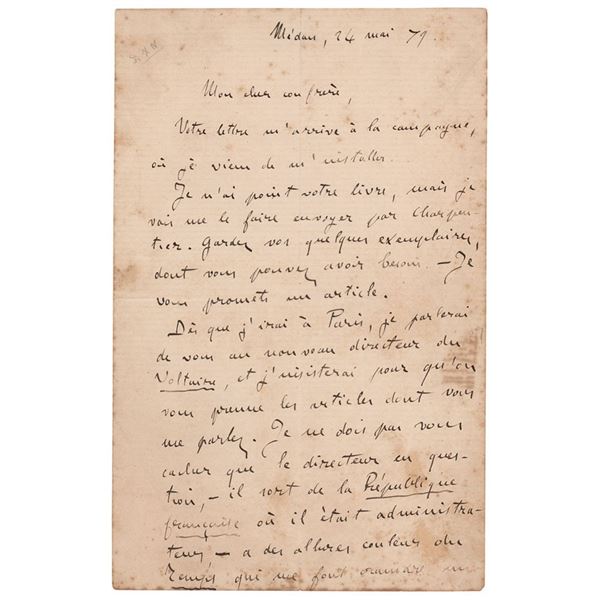 Médan, 24 mai 79.
Mon cher confrère,
Votre lettre m'arrive à la campagne,
où je viens de m'installer.
Je n'ai point votre livre, mais je
vais me le faire envoyer par Charpen-
tier. Gardez vos quelques exemplaires,
dont vous pouvez avoir besoin. — Je
vous promets un article.
Dès que j'irai à Paris, je parlerai
de vous au nouveau directeur du
Voltaire, et j'insisterai pour qu'on
vous prenne les articles dont vous
me parlez. Je ne dois pas vous
cacher que le directeur en ques-
tion, — il sort de la République
française où il était administra-
teur, — a des allures couleur du
Temps qui me font craindre